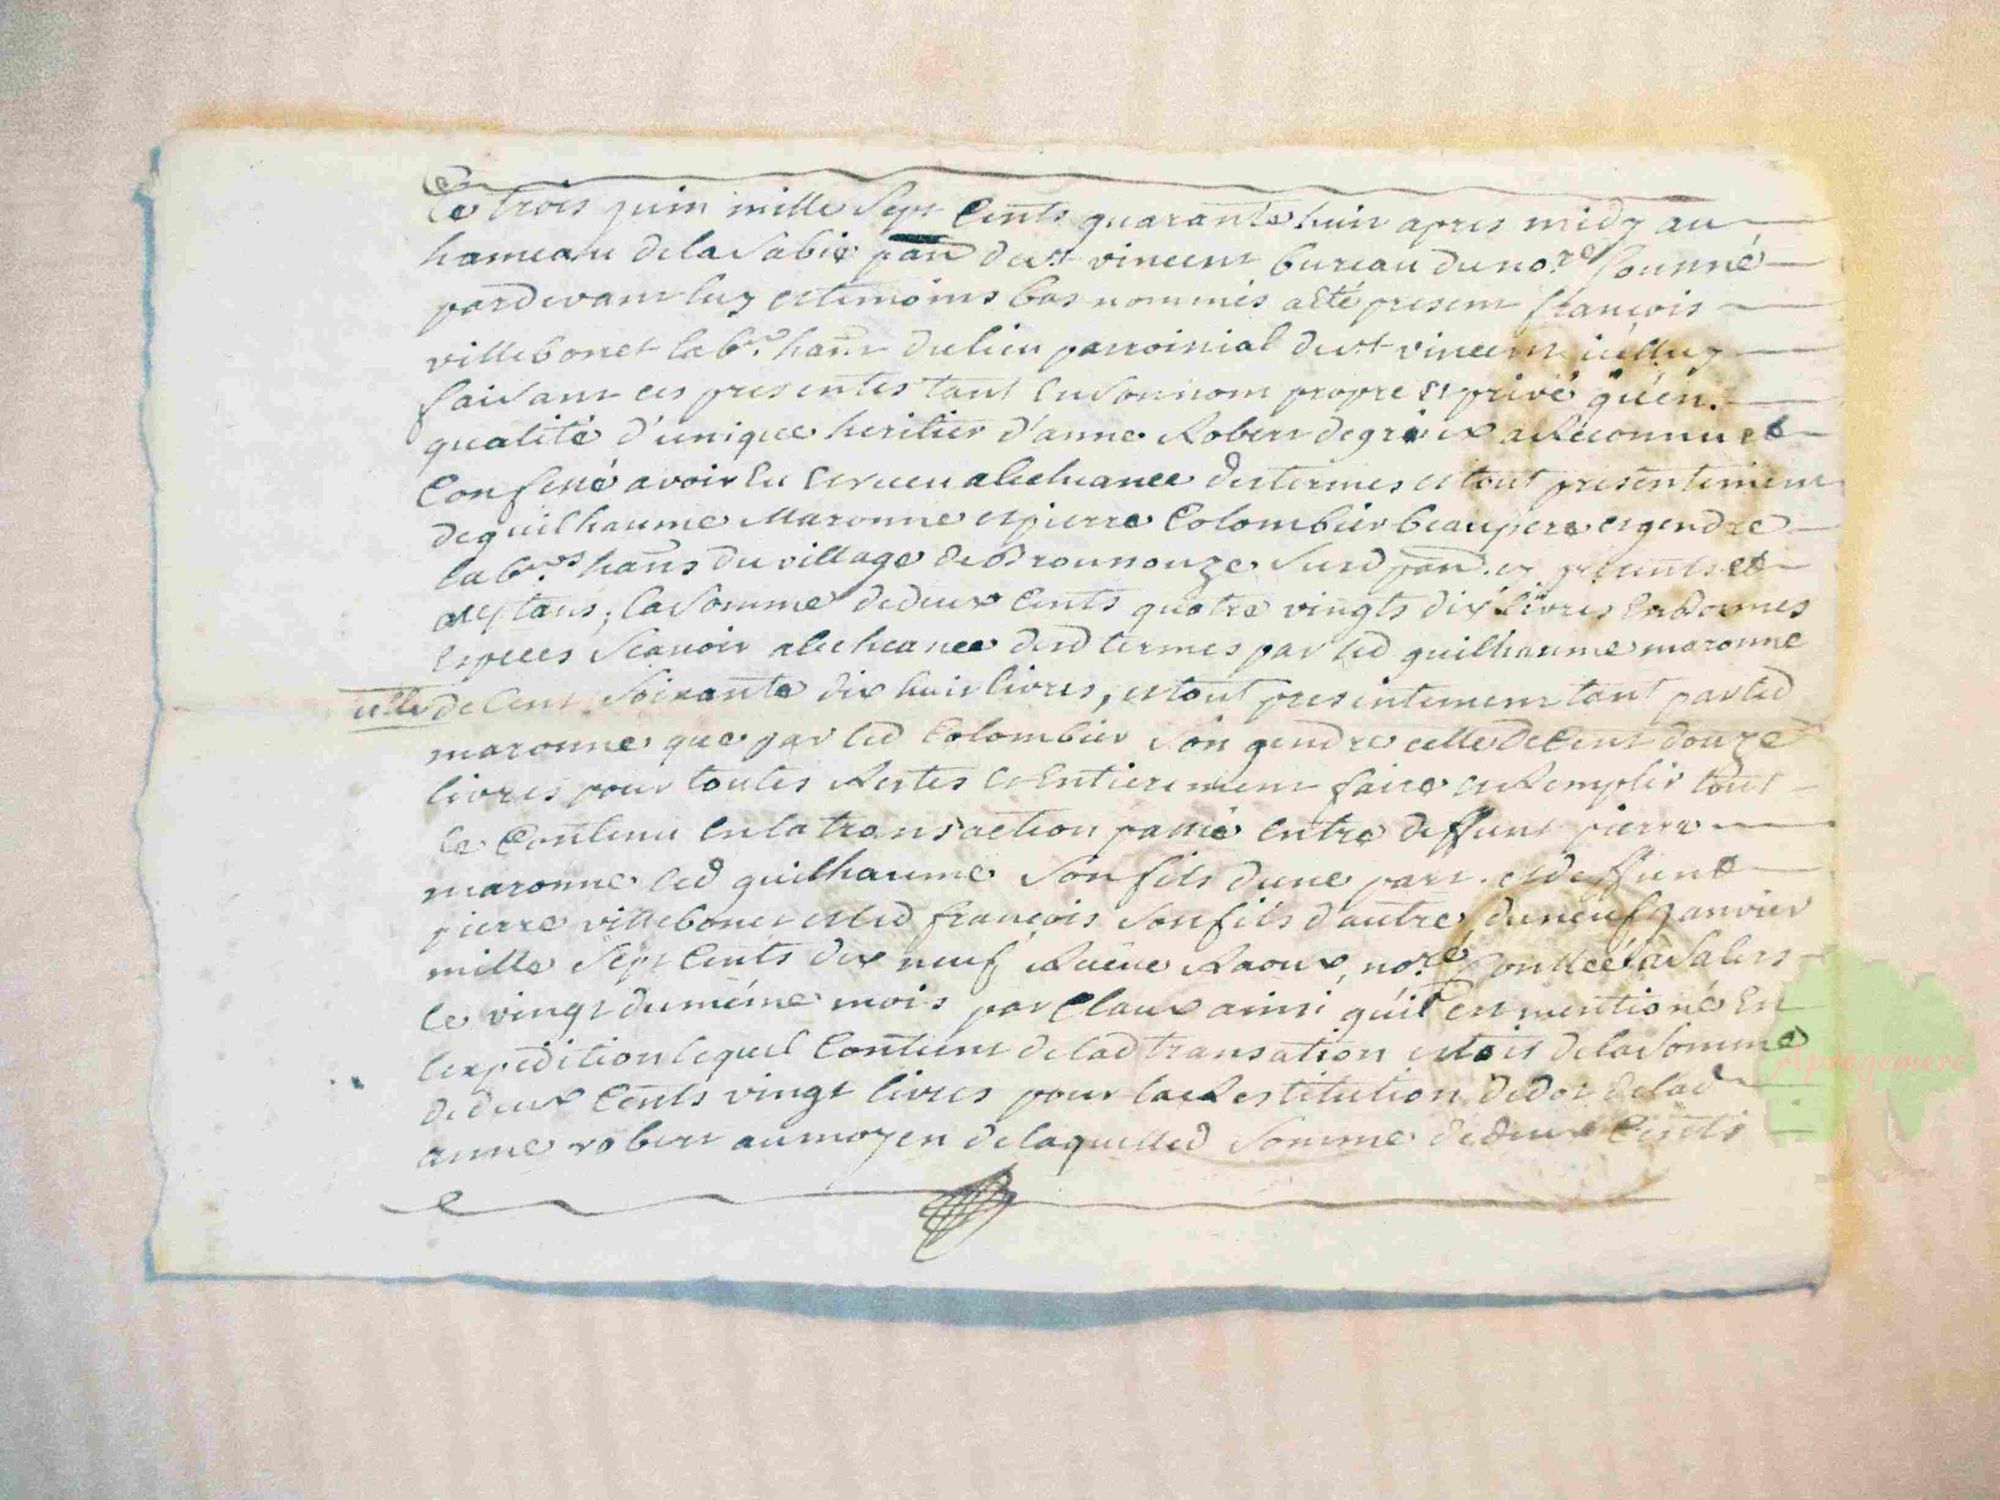 Le trois juin mille sept cents quarante huit apres midy au
hameau de la Sabie parr de st vincent bureau du nore Sounné
pardevant luy et temoins bas nommés a été present françois
villebonet labr habnt du lieu parroissial de st vincent icelluy
faisant ces presentes tant en son nom propre et privé qu'en
qualité d'unique heritier d'anne Robert de gré a Réconnu et
Confessé avoir Eu Et reçu a lecheance des termes et tout presentement
de guilhaume Maronne et pierre Colombier beaupere et gendre
labrs habns du village de susd parr. icy presents et
aceptans, la somme de deux Cents quatre vingts dix livres En bonnes
Especes Scavoir a lecheance desd termes par led guilhaume maronne
celle de Cent Soixante dix huit livres, et tout presentement tant par led
maronne que par led Colombier son gendre celle de Cent douze
livres pour toutes Restes Et Entierement faire et Remplir tout
le Contenu En la transaction passée Entre deffunt pierre
maronne led guilhaume son fils d'une part et deffunt
pierre villebonet et led françois son fils d'autre, du neuf Janvier
mille Sept Cents dix neuf Raoux, nore a Salers
le vingt du même mois par Claux ainsi qu'il est mentioné En
l'expedition lequel Contenu de lad transation etoit de la somme
de deux Cents vingt livres pour la Restitution de dot de lad
anne robert au moyen de laquelled Somme de deux Cents
Aprogemere